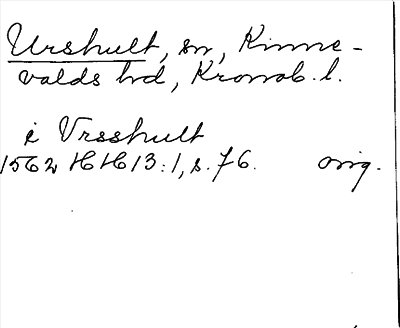 Urshult, sn, Kinne-
valds hd, Kronob. l.
i Vrsshult
1562 HH 13:1, s. 76. orig.